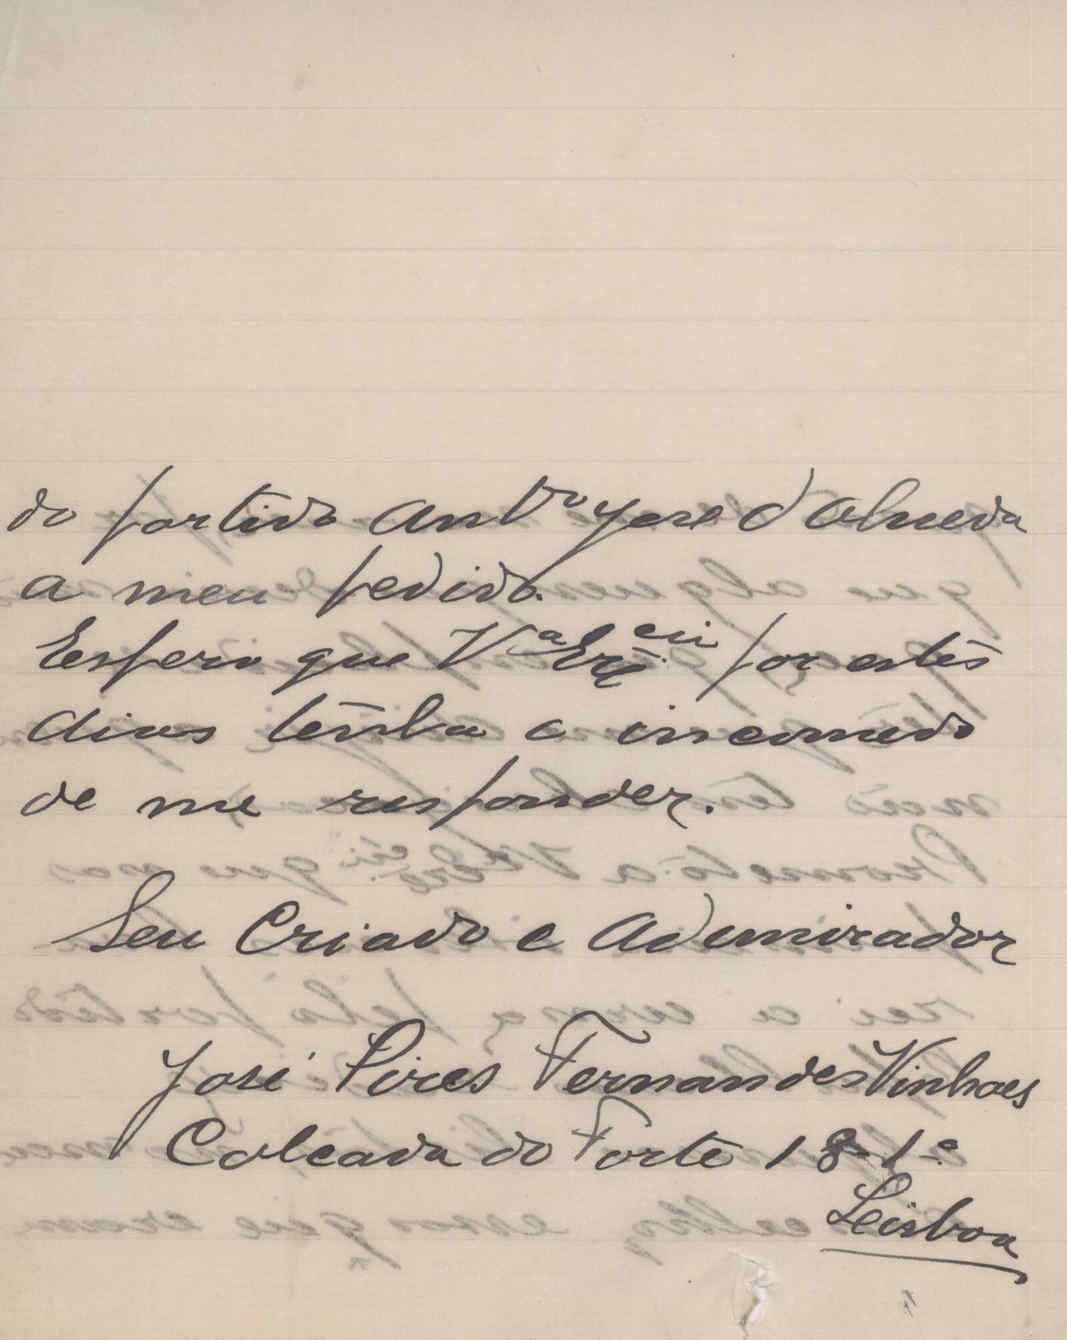 do partido Antº José d'Almeida
a meu pedido.
Espero que Vª Exᶜⁱᵃ por estes
dias tenha o incomodo
de me responder.
Seu Criado eAdemirador
José Pires Fernandes Vinhaes
Calcada do Forte 18-1º
Leisboa